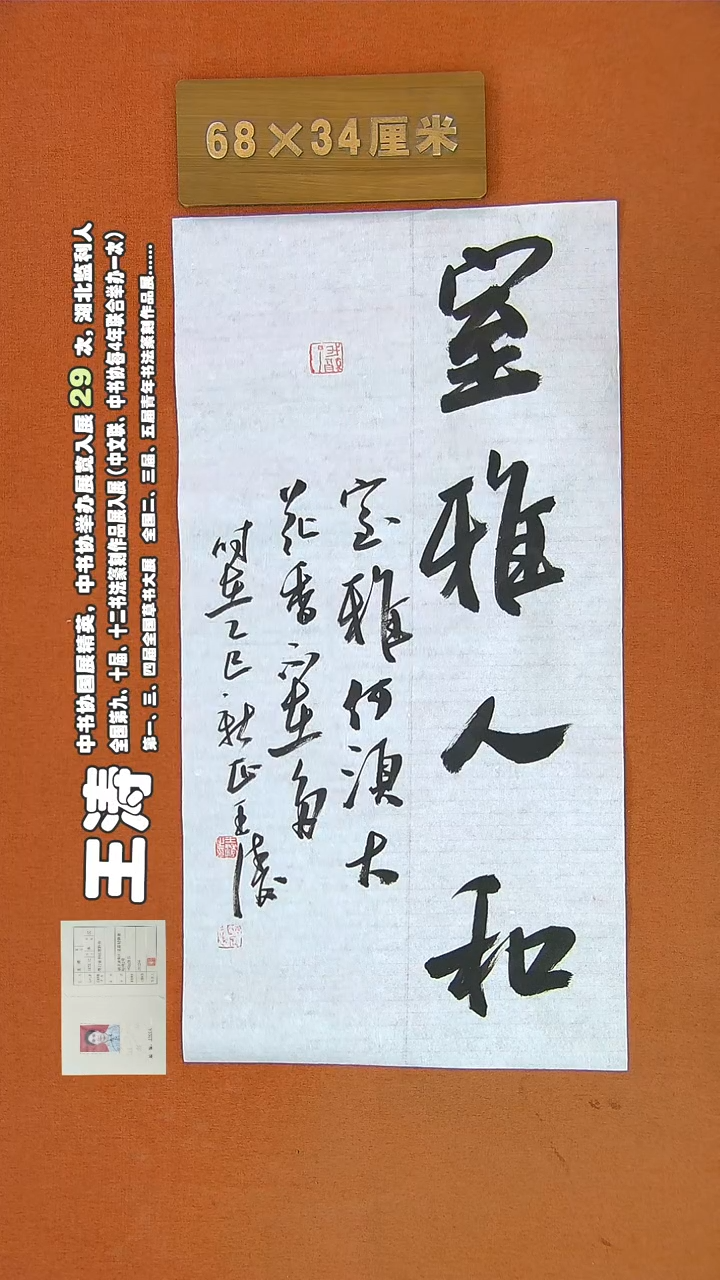 68×34厘米
室雅人和
室雅何须大
花香不在多
时在乙巳秋月王涛
王涛
中书协国展精英，中书协举办展赛入展 29 次，湖北监利人
全国第九、十届、十二书法篆刻作品展入展（中文联、中书协每4年联合举办一次）
第一、三、四届全国草书大展 全国二、三届、五届青年书法篆刻作品展......